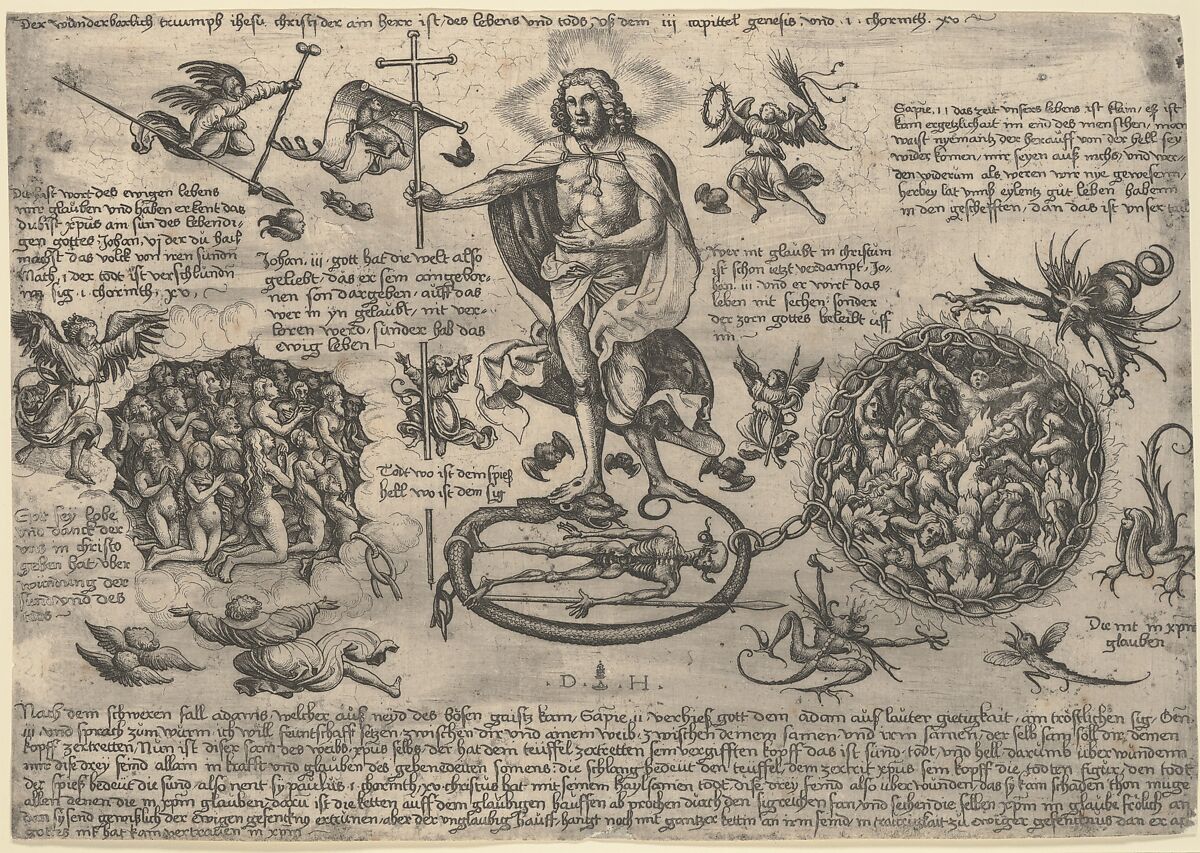 Der wunderbarlich triumph ihesu christi der ain herr ist des lebens und tods, uß dem iii capittel genesis, und . i . chorinth . xv
Sapie, ii das zeit unsers lebens ist klain, eß ist
kain ergetzlichait im end des menschen, man
waist nyemanch der herauff von der hell sey
wider komen, mir seyen auß nichs, und wer-
den widerum als weren wir nye gewesenn,
herbey lat unnß eylents gut leben habenn
in den geschefften, dan das ist unser tail
Du hast wort des ewigen lebens
wir glauben und haben erkent das
du bist xpus ain sun des lebendi-
gen gottes Johan, vi der du hail
machst das volck von iren sundn
Math, i der todt ist verschlundn
im sig . i . chorinth, xv,
Johan . iii . gott hat die welt also
geliebt, das er sein aingebor-
nen son dargeben, auff das
wer in yn gelaubt, nit ver-
loren werd, sunder hab das
Ewig leben
Wer nit glaubt in christum
ist schon ietzt verdampt, Jo-
han . iii und er wirt das
leben nit sechen, sonder
der zorn gottes beleibt uff
im
Todt wo ist dein spieß
hell wo ist dein sig
Gott sey lobe
und danck der
uns in christo
geben hat uber
windung der
sund und des
tods
Die nit in xpm
glauben
. D . H .
Nach dem schweren fall adams, welcher auß neyd des bosen gaists kam, Sapie, ii verhieß gott dem adam auß lauter gietigkait, ain trostlichen sig, Gen
iii und sprach zum wurm, ich will feintschafft setzen, zwischen dir und ainem weib, zwischen deinem samen und irm samen, der selb sam soll dir deinen
kopff zertretten, Nun ist diser sam des weibs, xpus selbs, der hat dem teuffel zertretten sein vergifften kopff das ist sund, todt, und hell darumb uberwundenn
mir dise drey feind allain in krafft und glauben des gebenedeiten somens: die schlang bedeut den teuffel, dem zertrit xpus sein kopff die todten figur, den todt
der spieß bedeut die sund, also nent sy paulus . i . chorinth, xv christus hat mit seinem haylsamen todt, dise drey feind also uberwunden, das sy kain schaden thon muge
allen denen die in xpm glauben, daru ist die ketten auff dem glaubigen hauffen ab prochen durch den sigreichen fan, und sehend die selben xpm im glaube frolich an
dan sy send gewißlich der Ewigen gefencknus extrunen, aber der unglaubig hauff, hangt noch mit gantzer kettin an irm feind, in traurigkait zu Ewiger gefencknus dan er
gottes nit hat kain vertrauen in xpm